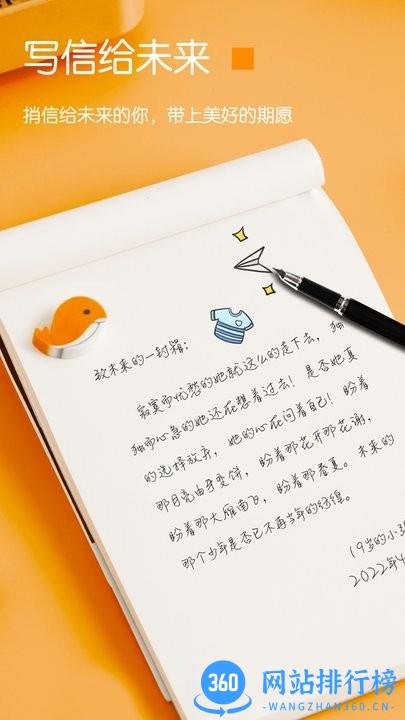 写信给未来
捎信给未来的你，带上美好的期愿
致未来的一封箱：
寂寞而忧愁的她就这么的走下去，独
独而心急的她还在想着过去！是否她真
的选择放弃，她的心在问着自己！盼着
那月亮由牙变饼，盼着那花开那花谢，
盼着那大雁南飞，盼着那春夏。未来的
那个少年是否已不再当年的
19岁的小
2022年4
360
网站排行榜
-WANGZHAN360.CN-